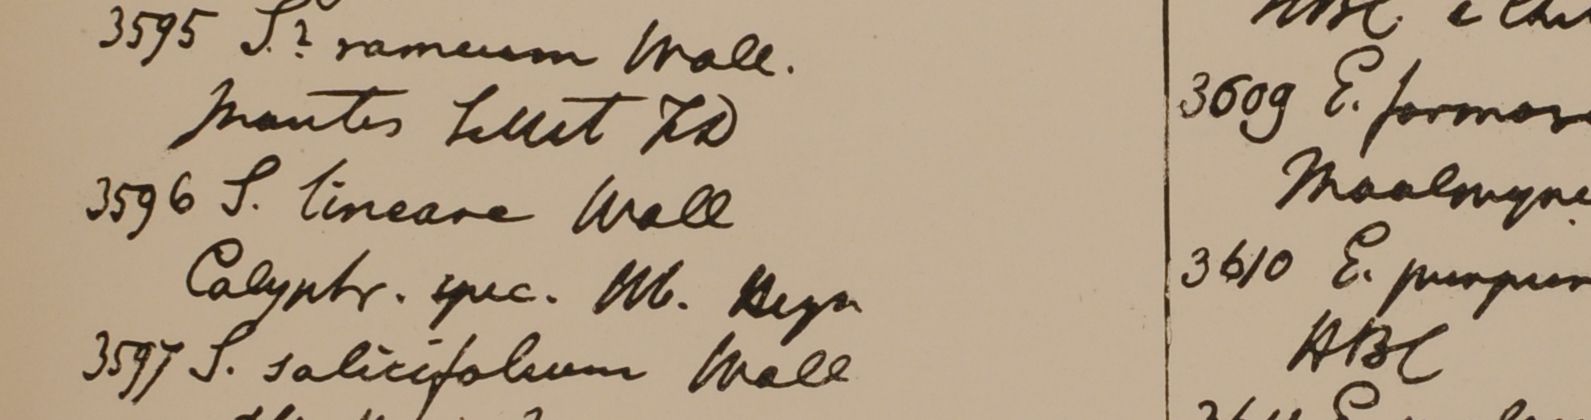 3595 S.? rameum Wall.
Montes Sillet FD
3596 S. lineare Wall
Calyptr. spec. Hb. Heyn
3597 S. salicifolium Wall
HBC. e
3609 E. formos
Moalmyne
3610 E. purpur
HBC